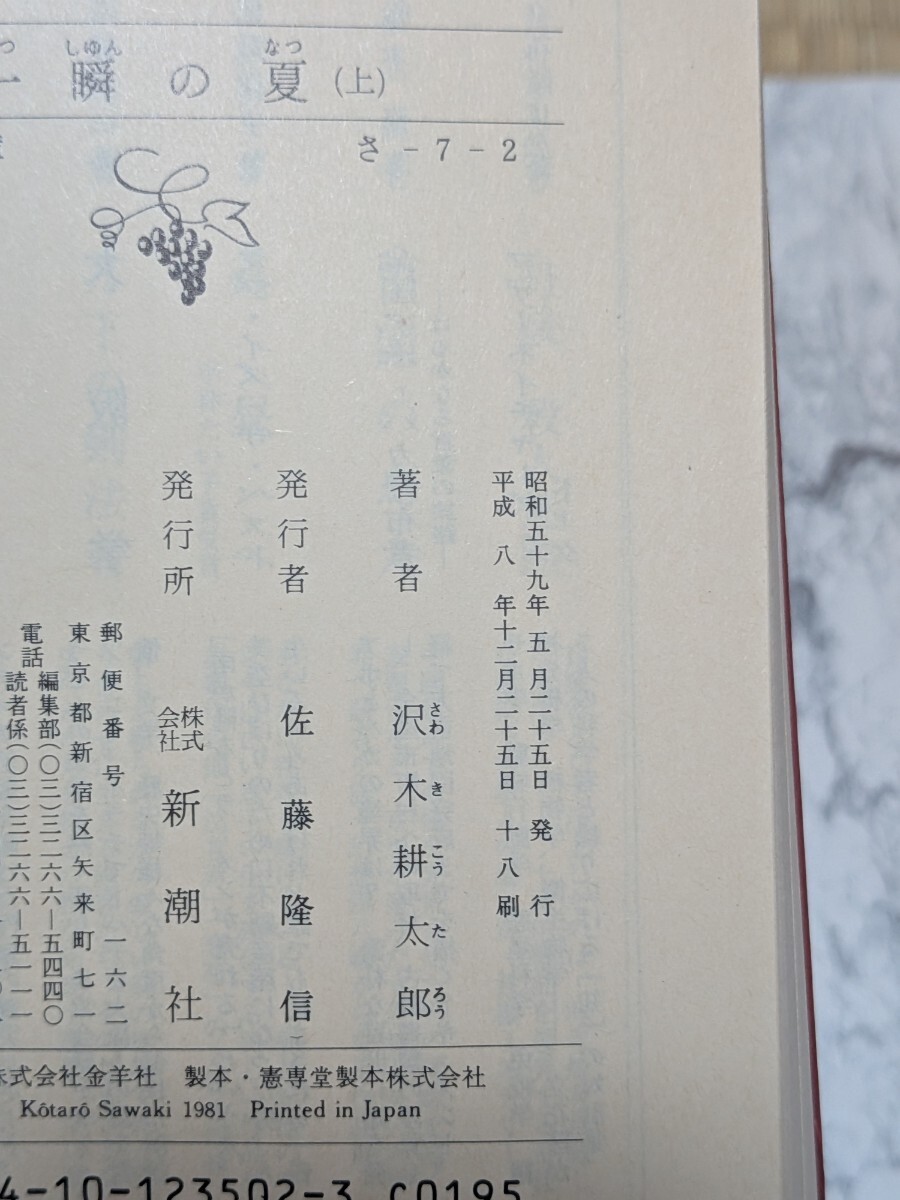 しゆん なつ
一瞬の夏(上)
さ-7-2
昭和五十九年 五月二十五日 発行
平成八年十二月二十五日 十八刷
著者 沢木耕太郎
さわ き こう た ろう
発行者 佐藤隆信
発行所 株式会社 新潮社
郵便番号 一六二
東京都新宿区矢来町七一
電話 編集部(〇三)三二六六―五四四〇
読者係(〇三)三二六六―五一一一
株式会社金羊社 製本・憲専堂製本株式会社
Kôtarô Sawaki 1981 Printed in Japan
4-10-123502-3 C0195